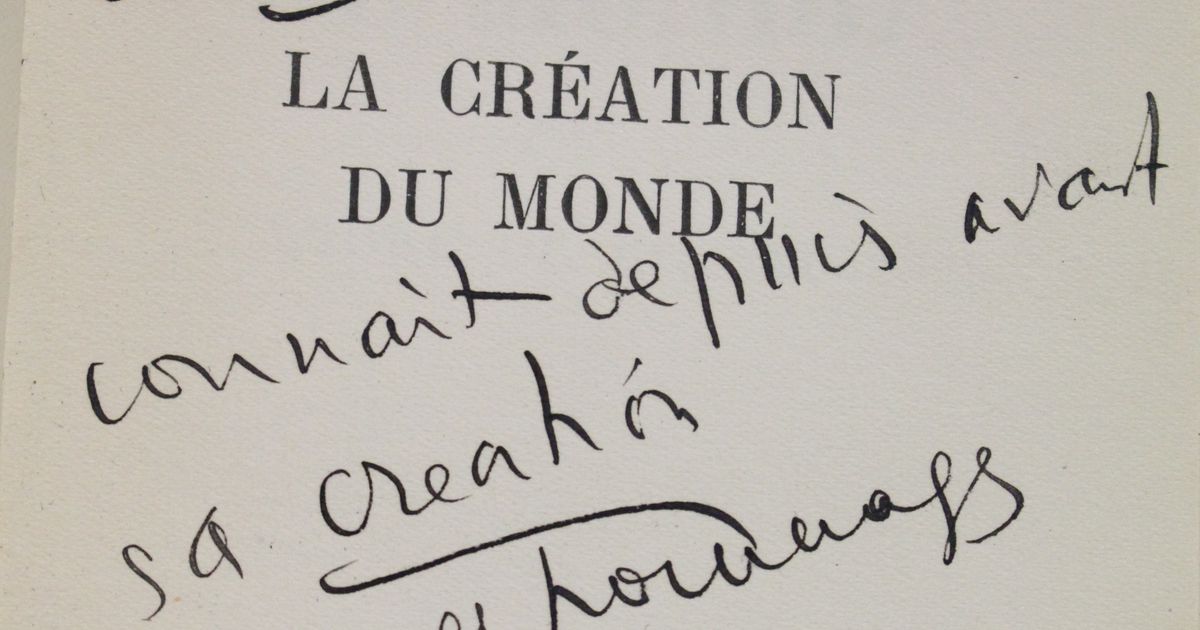 LA CRÉATION
DU MONDE
connait depuis avant
sa création
hommages